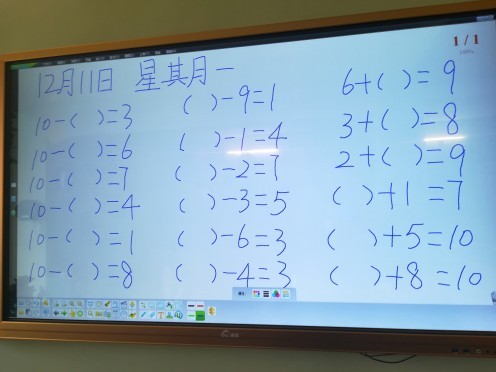 1/1
12月11日 星其月一
10-( )=3
10-( )=6
10-( )=7
10-( )=4
10-( )=1
10-( )=8
( )-9=1
( )-1=4
( )-2=7
( )-3=5
( )-6=3
( )-4=3
6+( )=9
3+( )=8
2+( )=9
( )+1=7
( )+5=10
( )+8=10